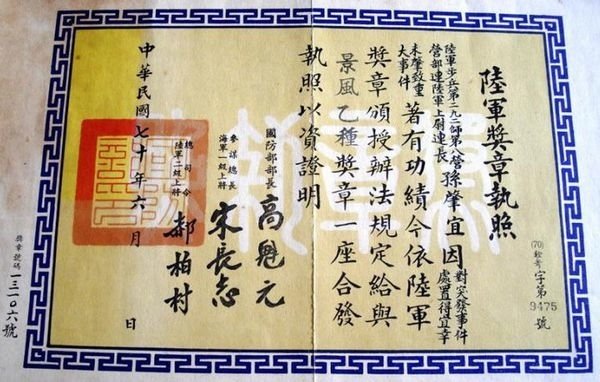 陸軍獎章執照
(70)
字第
9475
號
陸軍步兵第二九二師第八營
營部連陸軍上尉連長
孫肇宜因
對突發事件
處置得宜幸
未肇致重
大事件
著有功績今依陸軍
獎章頒授辦法規定給與
景風乙種獎章一座合發
執照以資證明
國防部部長
高魁元
參謀總長
海軍一級上將
宋長志
總司令
陸軍二級上將
郝柏村
中華民國七十年六月 日
獎章號碼一三一〇六號